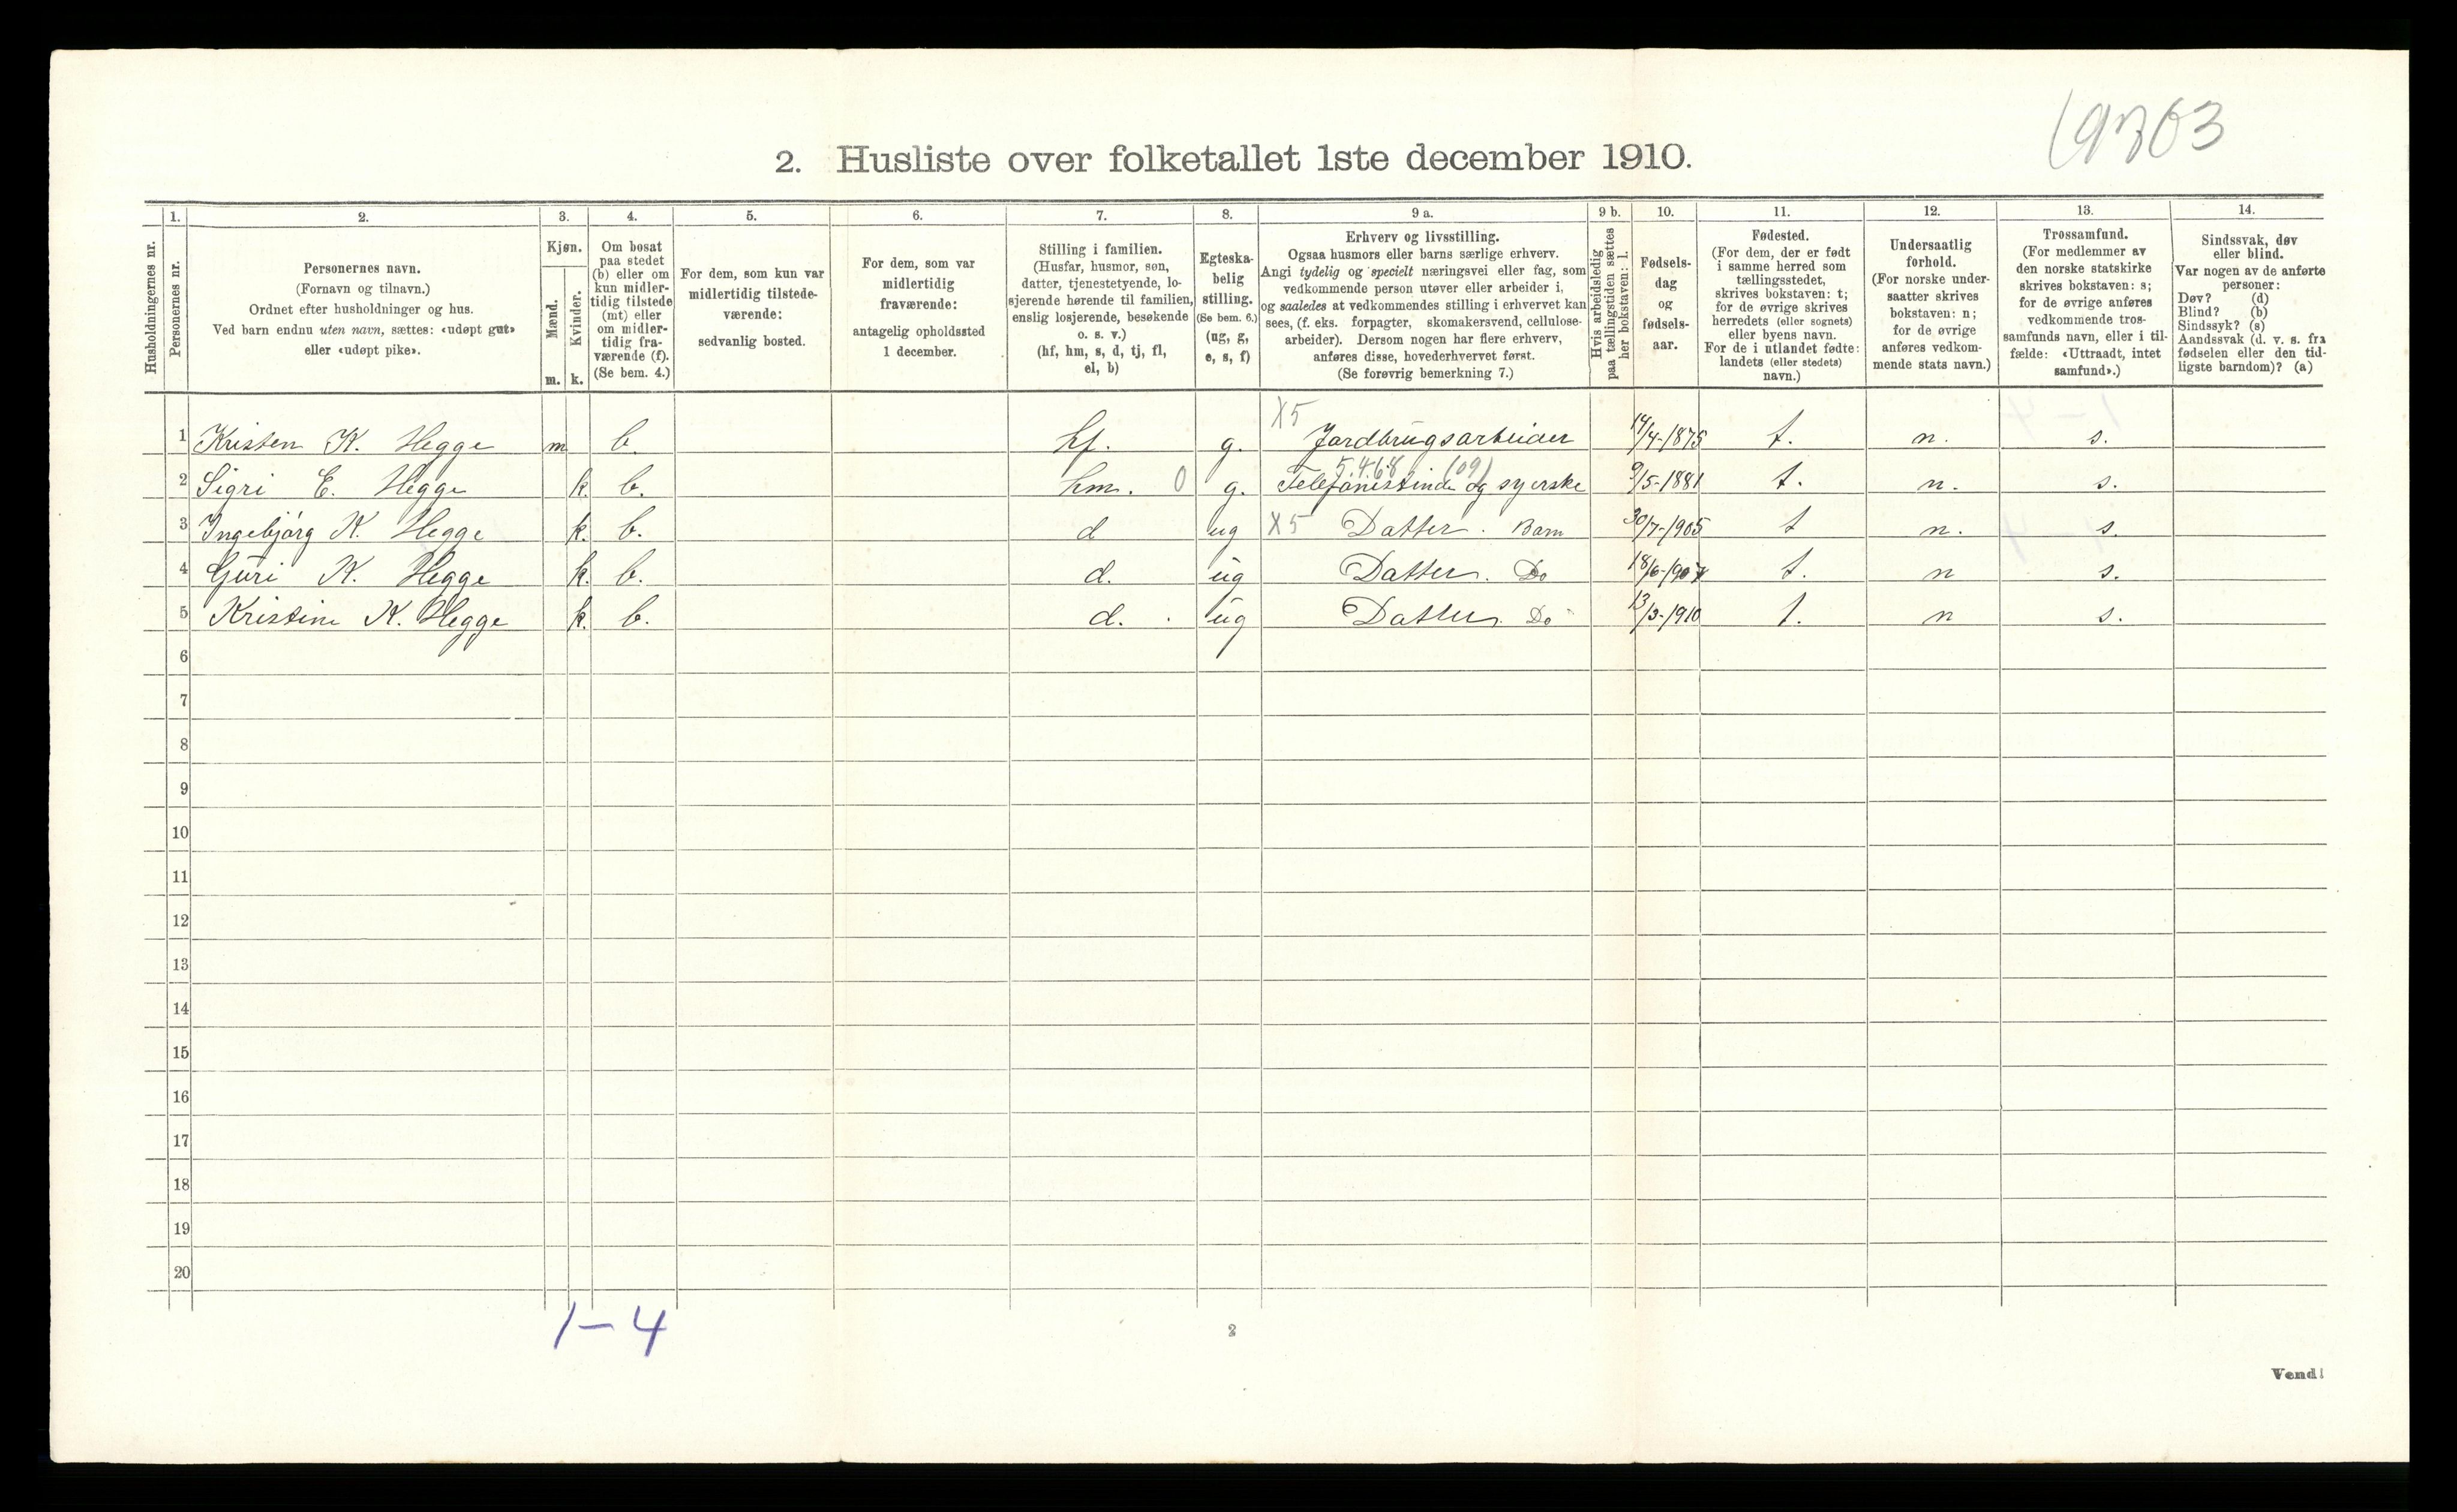 (9763
2. Husliste over folketallet 1ste december 1910.
Husholdningernes nr.
1.
Personernes nr.
2.
Personernes navn.
(Fornavn og tilnavn.)
Ordnet efter husholdninger og hus.
Ved barn endnu uten navn, sættes: «udøpt gut»
eller «udøpt pike».
3.
Kjøn.
Mænd.
Kvinder.
m. k.
4.
Om bosat
paa stedet
(b) eller om
kun midler-
tidig tilstede
(mt) eller
om midler-
tidig fra-
værende (f).
(Se bem. 4.)
5.
For dem, som kun var
midlertidig tilstede-
værende:
sedvanlig bosted.
6.
For dem, som var
midlertidig
fraværende:
antagelig opholdssted
1 december.
7.
Stilling i familien.
(Husfar, husmor, søn,
datter, tjenestetyende, lo-
sjerende hørende til familien,
enslig losjerende, besøkende
o. s. v.)
(hf, hm, s, d, tj, fl,
el, b)
8.
Egteska-
belig
stilling.
(Se bem. 6.)
(ug, g,
e, s, f)
9 a.
Erhverv og livsstilling.
Ogsaa husmors eller barns særlige erhverv.
Angi tydelig og specielt næringsvei eller fag, som
vedkommende person utøver eller arbeider i,
og saaledes at vedkommendes stilling i erhvervet kan
sees, (f. eks. forpagter, skomakersvend, cellulose-
arbeider). Dersom nogen har flere erhverv,
anføres disse, hovederhvervet først.
(Se forøvrig bemerkning 7.)
9 b.
Hvis arbeidsledig
paa tællingstiden sættes
her bokstaven: l.
10.
Fødsels-
dag
og
fødsels-
aar.
11.
Fødested.
(For dem, der er født
i samme herred som
tællingsstedet,
skrives bokstaven: t;
for de øvrige skrives
herredets (eller sognets)
eller byens navn.
For de i utlandet fødte:
landets (eller stedets)
navn.)
12.
Undersaatlig
forhold.
(For norske under-
saatter skrives
bokstaven: n;
for de øvrige
anføres vedkom-
mende stats navn.)
13.
Trossamfund.
(For medlemmer av
den norske statskirke
skrives bokstaven: s;
for de øvrige anføres
vedkommende tros-
samfunds navn, eller i til-
fælde: «Uttraadt, intet
samfund».)
14.
Sindssvak, døv
eller blind.
Var nogen av de anførte
personer:
Døv? (d)
Blind? (b)
Sindssyk? (s)
Aandssvak (d. v. s. fra
fødselen eller den tid-
ligste barndom)? (a)
X5
1 Kristen K. Hegge m b. hf. g. Jordbrugsarbeider 14/4-1875 t. n. s.
5.4.68 (09)
2 Sigri E. Hegge k. b. hm. 0 g. Telefonistinde og syerske 9/5-1881 t. n. s.
3 Ingebjørg K. Hegge k. b. d ug X5 Datter. Barn 30/7-1905 t n. s.
4 Guri K. Hegge k. b. d. ug Datter. Do 18/6-1907 t. n s.
5 Kristine K. Hegge k. b. d. ug Datter. Do 13/3-1910 t. n s.
6
7
8
9
10
11
12
13
14
15
16
17
18
19
20
1-4
2
Vend!